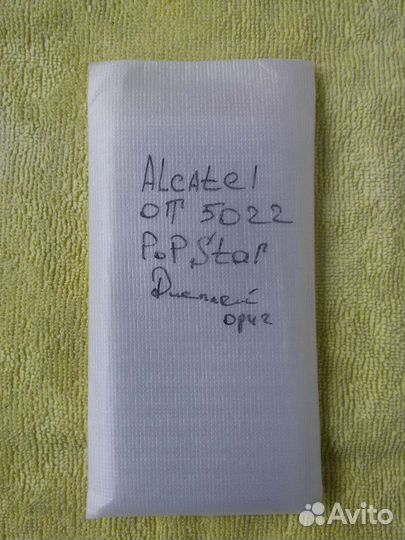 Alcatel
OT 5022
PoP Star
Дисплей
ориг
Avito